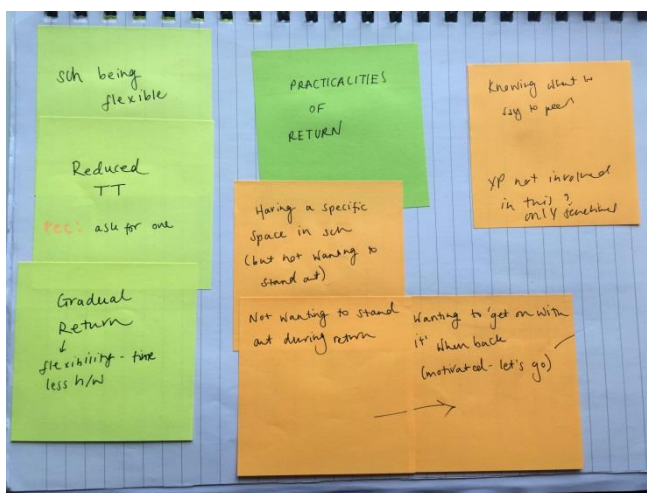 sch being
flexible
Reduced
TT
rec: ask for one
Gradual
Return
↓
flexibility - time
less h/w
PRACTICALITIES
OF
RETURN
Having a specific
space in sch
(but not wanting to
stand out)
Not wanting to stand
out during return
Wanting to 'get on with
it' when back
(motivated - let's go)
Knowing what to
say to peers
YP not involved
in this?
only sometimes